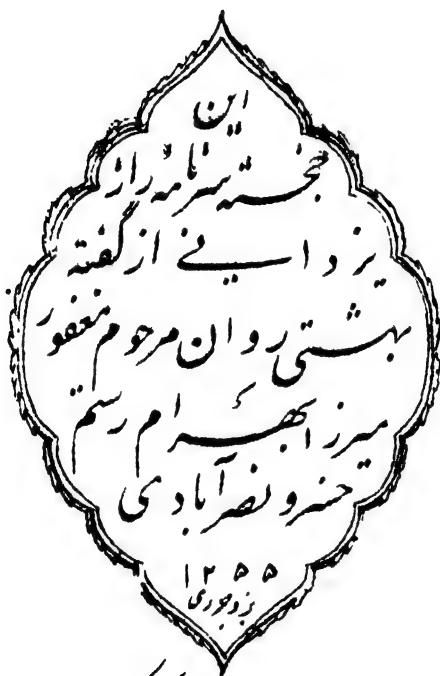 این
خجسته سرنامهٔ راز
یزدانی از گفته
بهشتی روان مرحوم مغفور
میرزا بهرام رستم
خسرو نصرآبادی
۱۲۵۵
یزدجردی